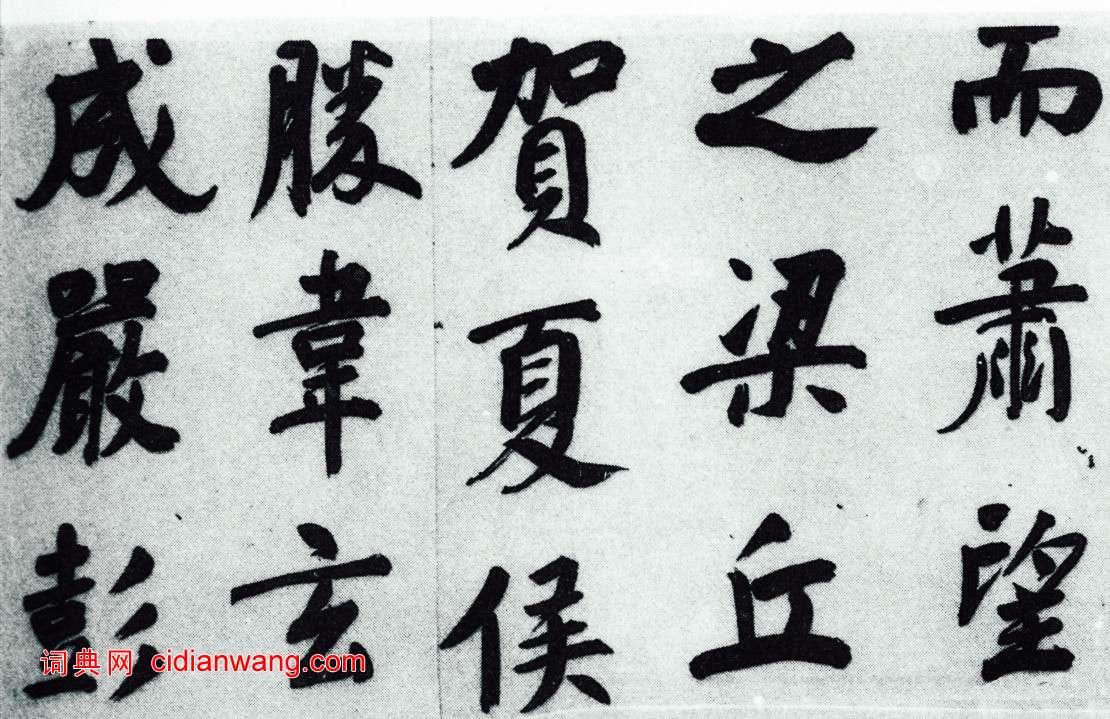 而蕭望
之梁丘
賀夏侯
勝韋玄
成嚴彭
词典网 cidianwang.com